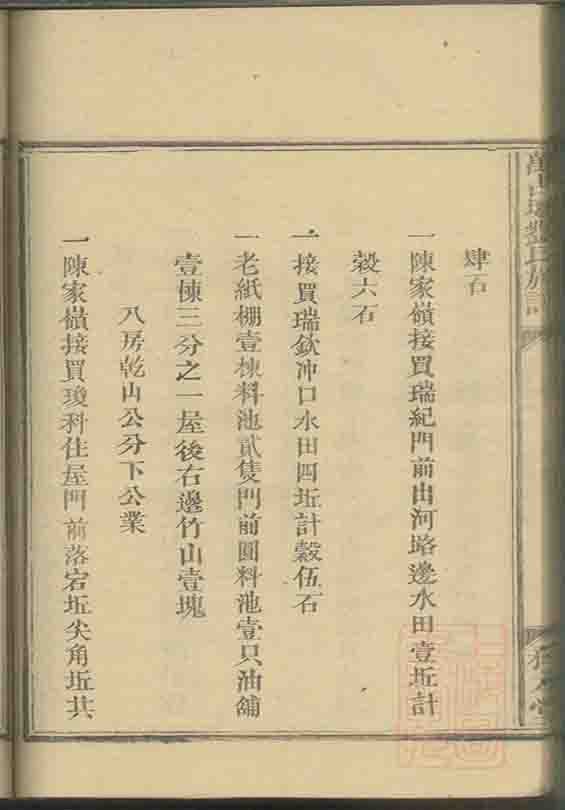 肆石
一陳家嶺接買瑞紀門前由河路邊水田壹坵計
穀六石
一接買瑞欽冲口水田四坵計穀伍石
一老紙棚壹棟料池貳隻門前圓料池壹只油舖
壹棟三分之一屋後右邊竹山壹塊
八房乾山公分下公業
一陳家嶺接買琼科住屋門前落宕坵尖角坵共